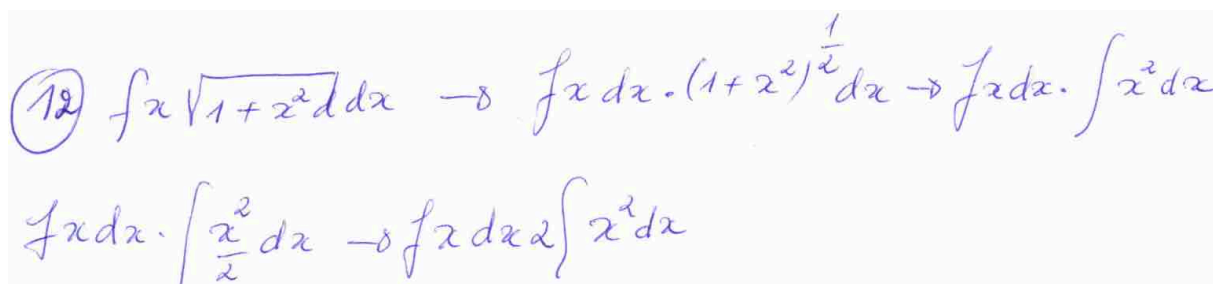 (12) ∫x √(1+x²d) dx → ∫x dx · (1+x²)^(1/2) dx → ∫x dx · ∫x² dx
∫x dx · ∫x²/2 dx → ∫x dx 2∫x² dx